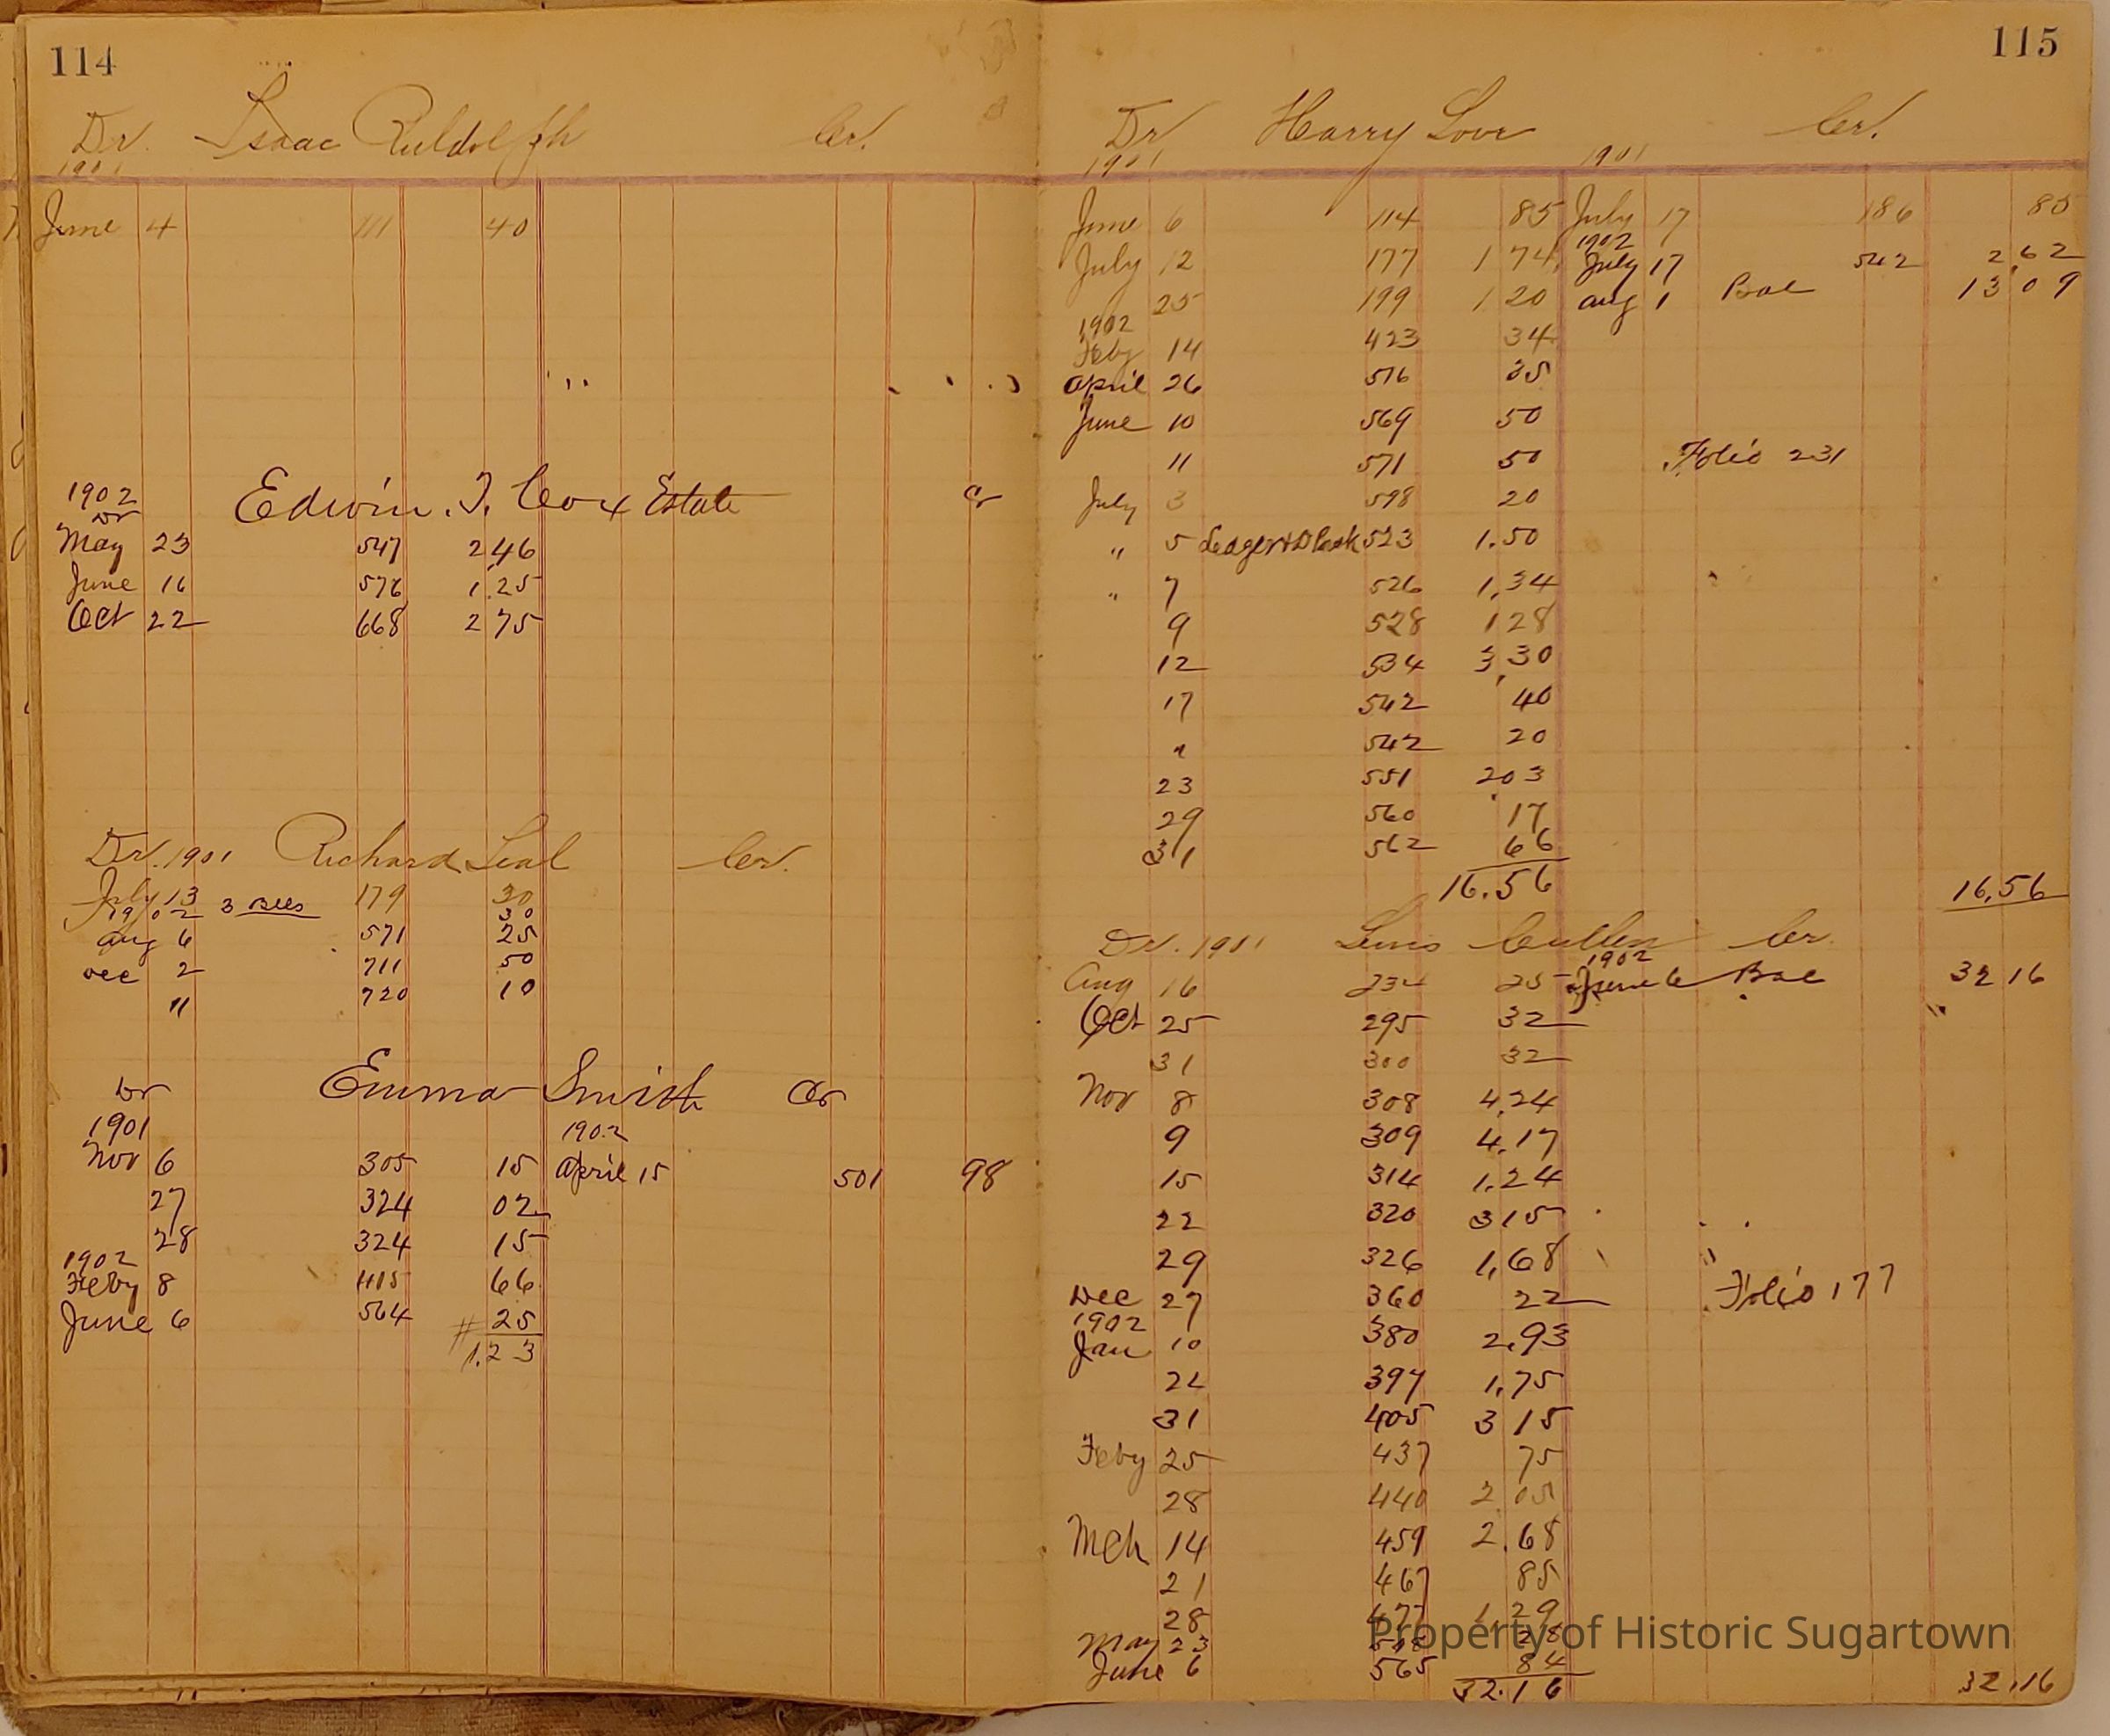 114
Dr. Isaac Ruldolph Cr.
1901
June 4 111 40
1902 Edwin. T. Cox Estate Cr
Dr
May 23 547 2 46
June 16 576 1.25
Oct 22 668 2 75
Dr. 1901 Richard Leal Cr.
July 13 179 30
1902 3 30
Aug 6 571 25
Dec 2 711 50
11 720 10
Dr Emma Smith Cr
1901 1902
Nov 6 305 15 April 15 501 98
27 324 02
28 324 15
1902
Feby 8 415 66
June 6 564 25
1.23
115
Dr Harry Love Cr.
1901 1901
June 6 114 85 July 17 186 85
1902
July 12 177 1 74 July 17 542 2.62
25 199 1 20 Aug 1 Bal 13 09
1902
Feby 14 423 34
April 26 516 35
June 10 569 50
11 571 50 Folio 231
July 3 598 20
" 5 Ledger 523 1.50
" 7 526 1.34
9 528 1 28
12 534 3.30
17 542 40
" 542 20
23 551 2 03
29 560 17
31 562 66
16.56 16.56
Dr. 1901 Lewis Cullen Cr.
1902
Aug 16 234 25 June 6 Bal 32 16
Oct 25 295 32
31 300 32
Nov 8 308 4.24
9 309 4.17
15 314 1.24
22 320 3 15
29 326 1.68
Dec 27 360 22 Folio 177
1902
Jan 10 380 2.93
24 397 1.75
31 405 3 15
Feby 25 437 75
28 440 2.05
Mch 14 459 2.68
21 467 85
28 477 1.29
May 23 548 28
June 6 565 84
32.16 32.16
Property of Historic Sugartown